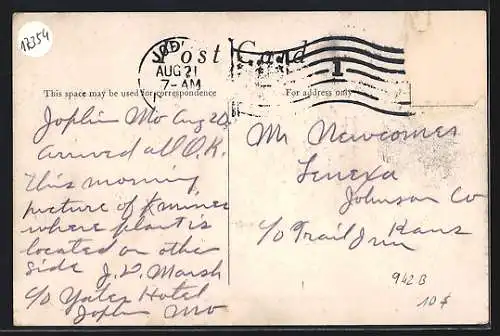 12354
JOP
AUG 21
7-AM
1
Post Card
This space may be used for correspondence
For address only
Joplin Mo Aug 20
arrived all O.K.
this morning
picture of mines
where plant is
located on other
side J.W. Marsh
c/o Yates Hotel
Joplin Mo
Mr Newcomer
Lenexa
Johnson Co
Kans
c/o Trail Inn
942B
10$